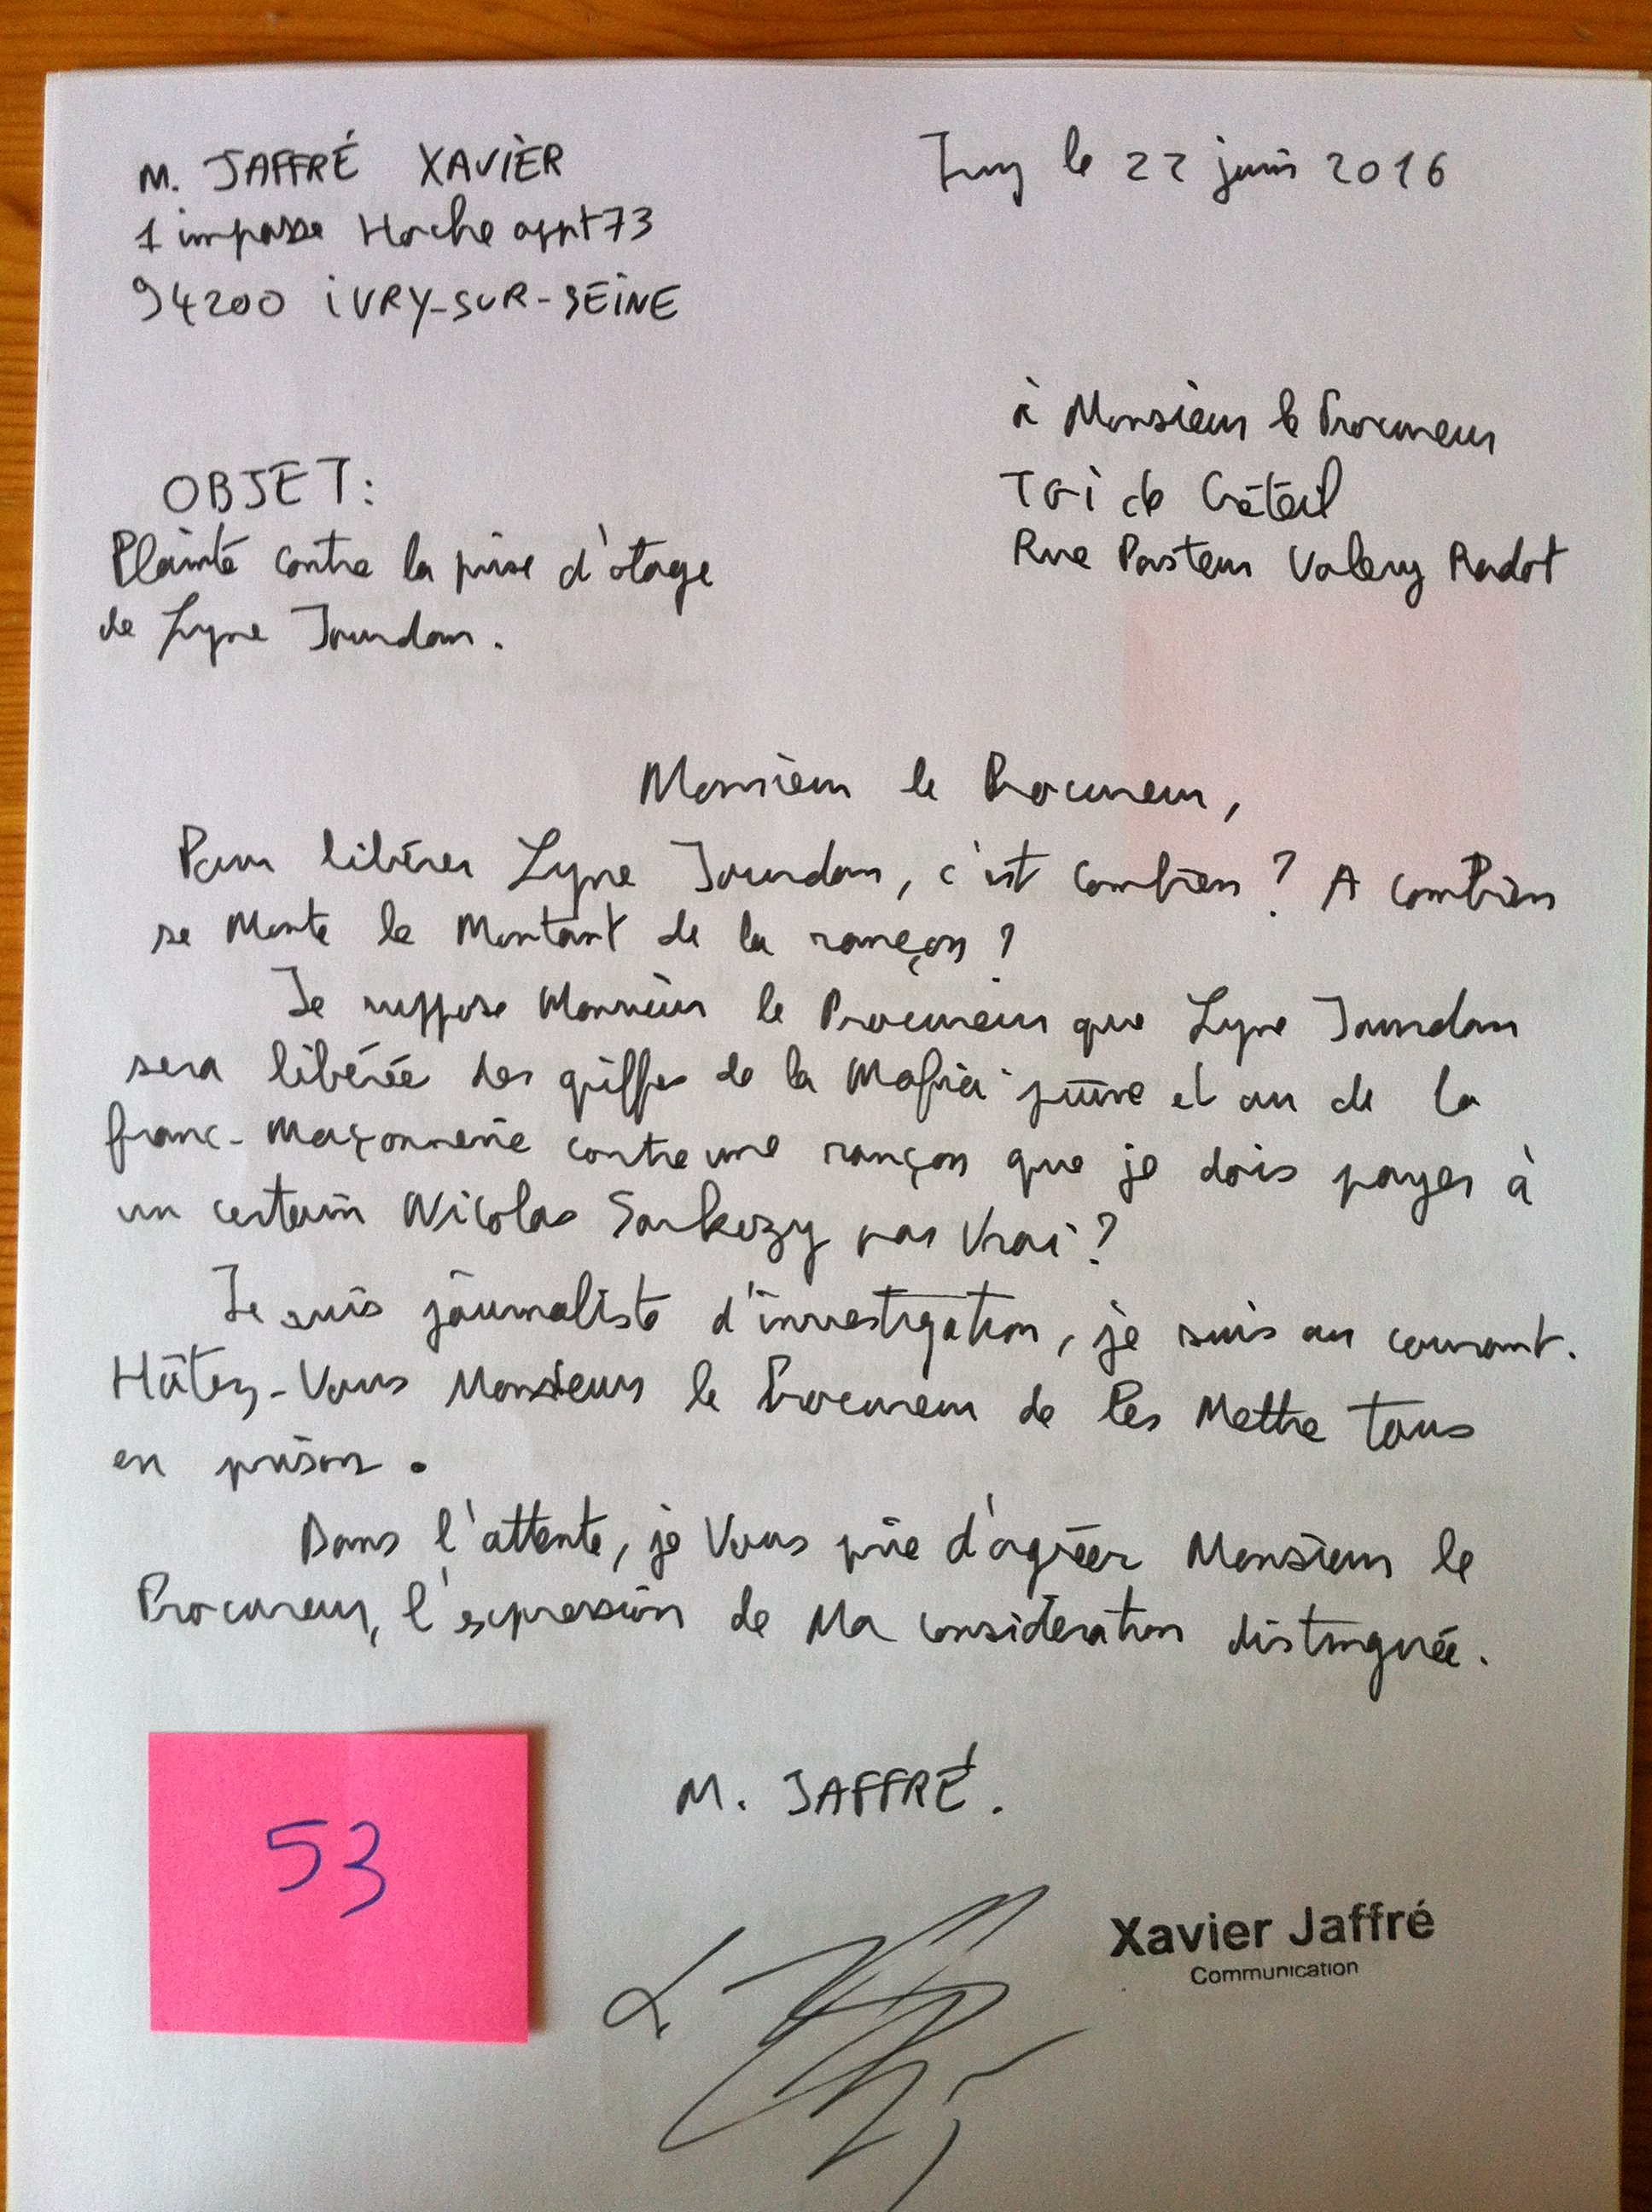 M. JAFFRÉ XAVIER
1 impasse Hoche appt 73
94200 IVRY-SUR-SEINE
Ivry le 22 juin 2016
à Monsieur le Procureur
TGI de Créteil
Rue Pasteur Valery Radot
OBJET:
Plainte contre la prise d'otage
de Lyne Jourdan.
Monsieur le Procureur,
Pour libérer Lyne Jourdan, c'est combien ? A combien
se monte le montant de la rançon ?
Je suppose Monsieur le Procureur que Lyne Jourdan
sera libérée des griffes de la Mafia juive et ou de la
franc-maçonnerie contre une rançon que je dois payer à
un certain Nicolas Sarkozy pas vrai ?
Je suis journaliste d'investigation, je suis au courant.
Hâtez-vous Monsieur le Procureur de les mettre tous
en prison.
Dans l'attente, je vous prie d'agréer Monsieur le
Procureur, l'expression de ma considération distinguée.
M. JAFFRÉ.
53
Xavier Jaffré
Communication